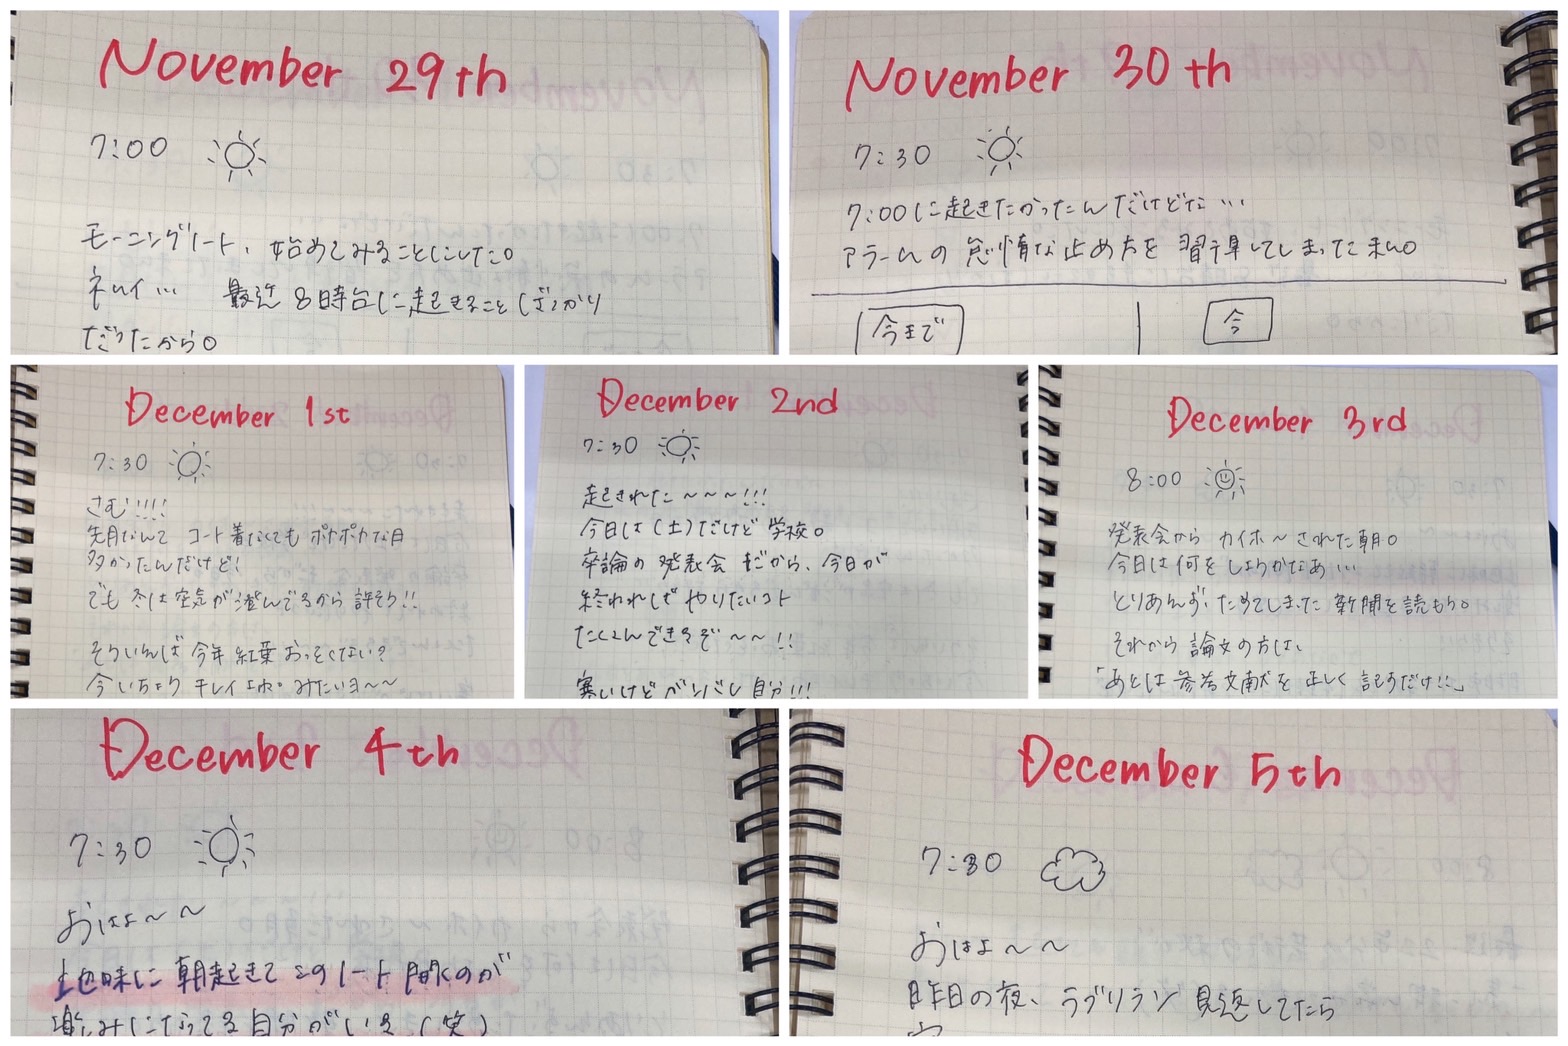 November 29th
7:00
モーニングノート、始めてみることにした。
ネムイ… 最近 8時台に起きることばっかり
だったから。
November 30th
7:30
7:00に起きたかったんだけどな…
アラームの怠惰な止め方を 習得してしまった私。
今まで
今
December 1st
7:30
さむ!!!!
先月なんて コート着なくても ポカポカな日
多かったんだけど!
でも 冬は空気が澄んでるから 許そう!!
そういえば 今年 紅葉 おっそくない?
今いちょう キレイよね。みたいヨ〜〜
December 2nd
7:30
起きれた〜〜〜!!!
今日は(土)だけど 学校。
卒論の 発表会 だから、今日が
終われば やりたいコト
たくさんできるぞ〜〜!!
寒いけど ガンバレ 自分!!!
December 3rd
8:00
発表会から カイホ〜された朝。
今日は何をしようかなあ…
とりあえず、ためてしまった 新聞を読もう。
それから 論文の方は、
「あとは 参考文献を 正しく 記すだけ!!」
December 4th
7:30
おはよ〜〜
地味に 朝起きて このノート 開くのが
楽しみになってる 自分がいる(笑)
December 5th
7:30
おはよ〜〜
昨日の夜、ラブリラン 見返してたら